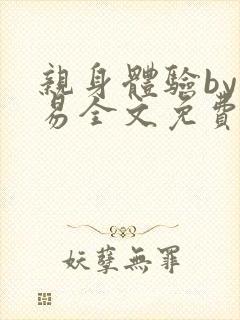 親身體驗by
易全文免費
妖孽無罪